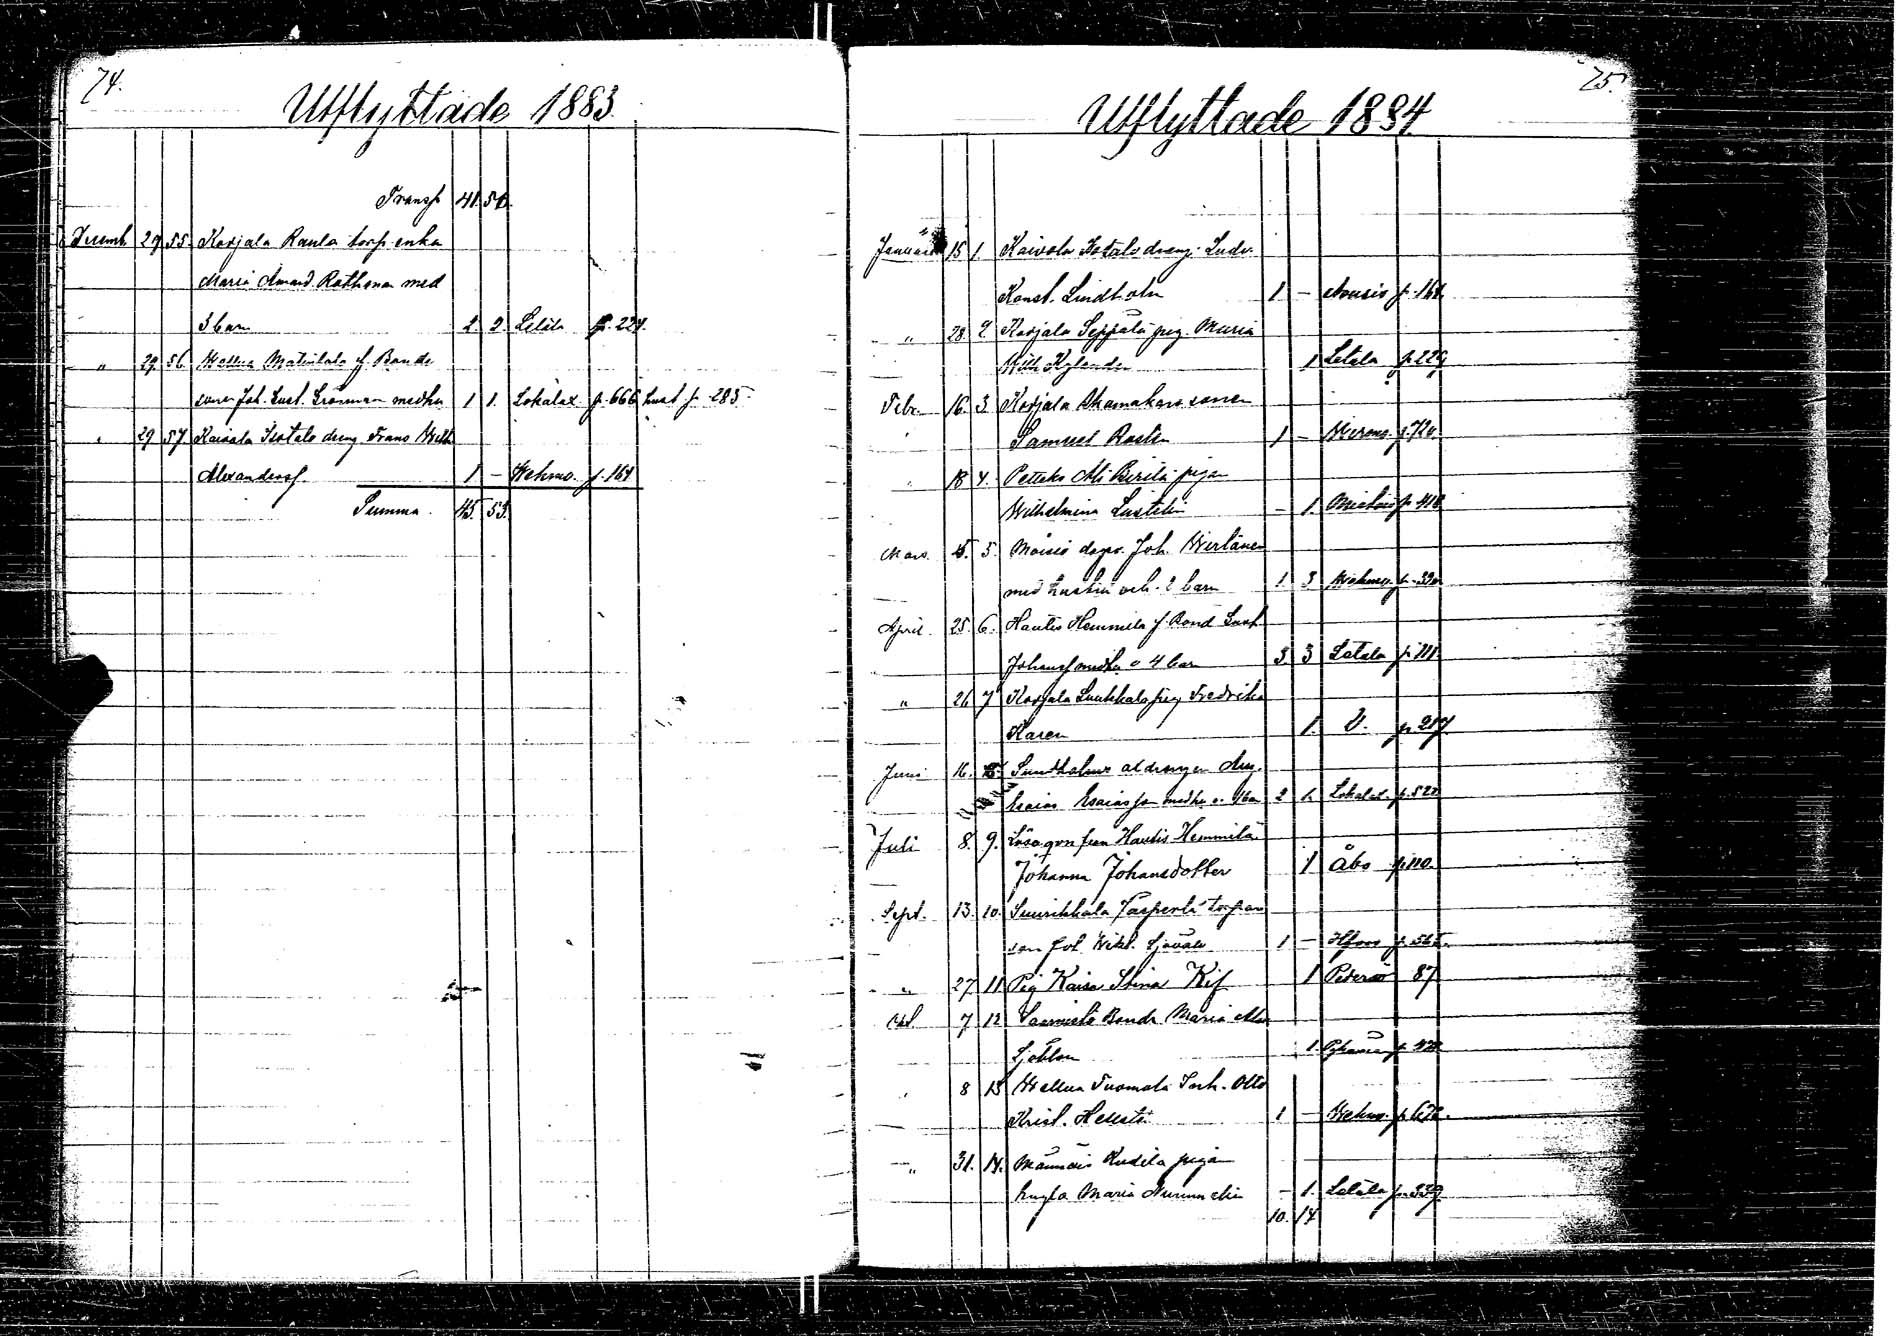 74.
Utflyttade 1883.
Transp 41. 50.
Decemb. 29 55. Korjala Raula torp. enka
Maria Amand. Rothsman med
3 barn 2. 2. Letala p. 224.
" 29. 56. Wellua Matintalo f. Bonde
sonen Joh. Gust. Grönman med hu 1 1. Lokalax p. 666 Gust p. 285
" 29 57. Kaivola Isotalo dreng Frans Wilh
Alexandersf. 1 – Wehmo. p. 164
Summa. 45. 53.
75.
Utflyttade 1884
Januari 15 1. Kaivola Isotalo dreng Ludv.
Konst. Lindholm 1 – Nousis p. 164.
" 28. 2 Korjala Seppälä pig. Maria
Wilh Kylander 1 Letala p. 229
Febr. 16. 3. Korjala Skomakare sonen
Samuel Roslin 1 – Wirmo p. 724.
" 18 4. Petteks Ali Pirilä pigan
Wilhelmina Lustelin – 1. p. 418
Mars. 5. 5. Moisio dagsv. Joh. Wirtanen
med hustru och 2 barn 1. 3 Wehmo p. 330
April. 25. 6. Hautis Hemmilä f. Bond Gust
Johansf med hu o 4 barn 3. 3 Letala p. 111
" 26 7 Korjala Luukkala pig Fredrika
Karen 1. D. p. 217.
Juni 16. 8. Sundholms
Esaias Esaiasson med hu o. 1 ba 2 1. Lokalax. p. 520
Juli 8. 9. Lösa qvn från Hautis Hemmilä
Johanna Johansdotter 1 Åbo p. 110.
Sept. 13. 10. Suurikkala Jasperlä torpare
son Joh Wikt. Sjövall 1 – Hfors p. 565.
" 27. 11 Pig Kaisa Stina Kif 1 Pedersö 87
Oct. 7 12 Saarnisto Bondr Maria
Sjöblom 1. Pyhämaa p.
" 8 13 Wellua Tuomola Inh. Otto
Krist. Hellst. 1 – Wehmo. p. 672.
" 31. 14. Männäis Kudila pigan
Maria Nurmelin – 1. Letala p. 339
10. 14